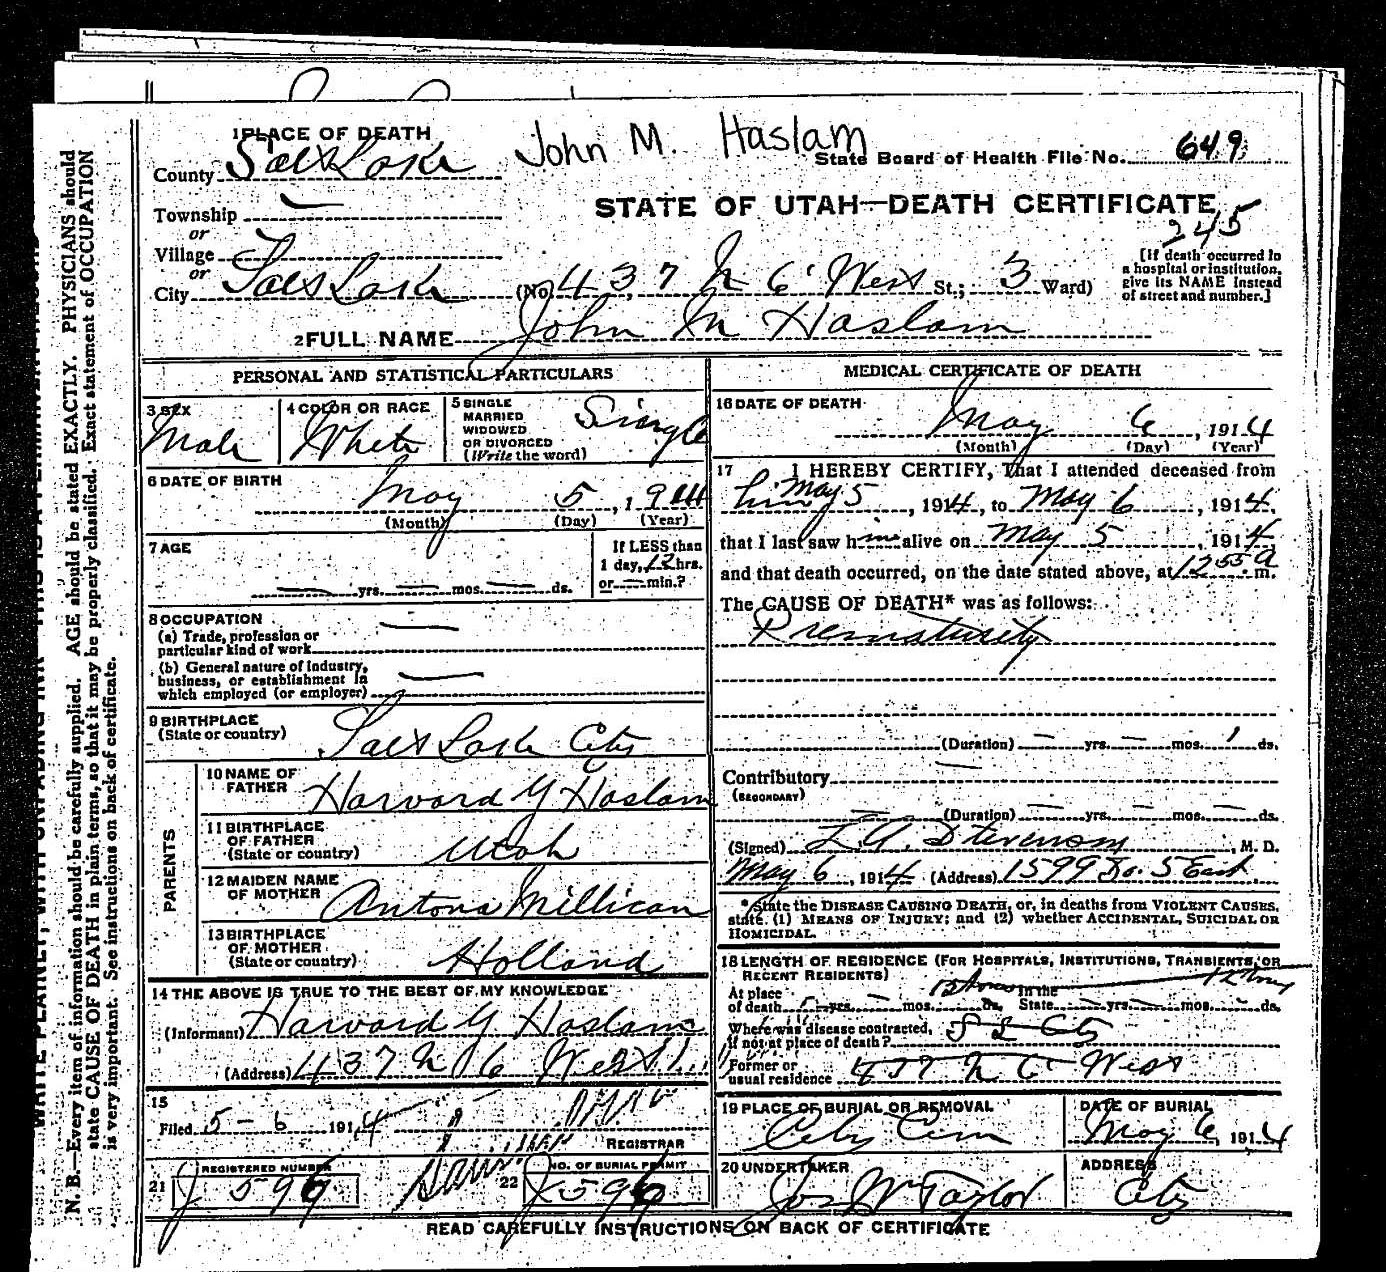 1 PLACE OF DEATH
John M. Haslam
County Salt Lake
State Board of Health File No. 649
Township —
or
STATE OF UTAH—DEATH CERTIFICATE
245
Village
or
City Salt Lake (No. 437 N 6 West St.; 3 Ward)
[If death occurred in
a hospital or institution,
give its NAME instead
of street and number.]
2 FULL NAME John M Haslam
PERSONAL AND STATISTICAL PARTICULARS
3 SEX
Male
4 COLOR OR RACE
White
5 SINGLE
MARRIED
WIDOWED
OR DIVORCED
(Write the word)
Single
6 DATE OF BIRTH
May 5, 1914
(Month) (Day) (Year)
7 AGE
— yrs. — mos. — ds.
If LESS than
1 day, 12 hrs.
or — min.?
8 OCCUPATION
(a) Trade, profession or
particular kind of work —
(b) General nature of industry,
business, or establishment in
which employed (or employer) —
9 BIRTHPLACE
(State or country)
Salt Lake City
PARENTS
10 NAME OF
FATHER
Harvard Y Haslam
11 BIRTHPLACE
OF FATHER
(State or country)
Utah
12 MAIDEN NAME
OF MOTHER
Antona Millican
13 BIRTHPLACE
OF MOTHER
(State or country)
Holland
14 THE ABOVE IS TRUE TO THE BEST OF MY KNOWLEDGE
(Informant) Harvard Y Haslam
(Address) 437 N 6 West
15
Filed 5-6 1914
REGISTRAR
21 REGISTERED NUMBER
J 596
22 NO. OF BURIAL PERMIT
J 596
MEDICAL CERTIFICATE OF DEATH
16 DATE OF DEATH
May 6, 1914
(Month) (Day) (Year)
17 I HEREBY CERTIFY, That I attended deceased from
him May 5, 1914, to May 6, 1914,
that I last saw him alive on May 5, 1914
and that death occurred, on the date stated above, at 12 55 a m.
The CAUSE OF DEATH* was as follows:
Prematurity
(Duration) — yrs. — mos. 1 ds.
Contributory —
(SECONDARY)
(Duration) — yrs. — mos. — ds.
(Signed) L. A. Stevenson, M. D.
May 6, 1914 (Address) 1599 So. 5 East
* State the DISEASE CAUSING DEATH, or, in deaths from VIOLENT CAUSES,
state (1) MEANS OF INJURY; and (2) whether ACCIDENTAL, SUICIDAL OR
HOMICIDAL.
18 LENGTH OF RESIDENCE (FOR HOSPITALS, INSTITUTIONS, TRANSIENTS, OR
RECENT RESIDENTS)
At place
of death — yrs. — mos. ds. In the
State — yrs. — mos. — ds.
Where was disease contracted,
if not at place of death? S L City
Former or
usual residence 437 N 6 West
19 PLACE OF BURIAL OR REMOVAL
City Cem
DATE OF BURIAL
May 6, 1914
20 UNDERTAKER
Jos W Taylor
ADDRESS
City
READ CAREFULLY INSTRUCTIONS ON BACK OF CERTIFICATE
N. B.—Every item of information should be carefully supplied. AGE should be stated EXACTLY. PHYSICIANS should
state CAUSE OF DEATH in plain terms, so that it may be properly classified. Exact statement of OCCUPATION
is very important. See instructions on back of certificate.